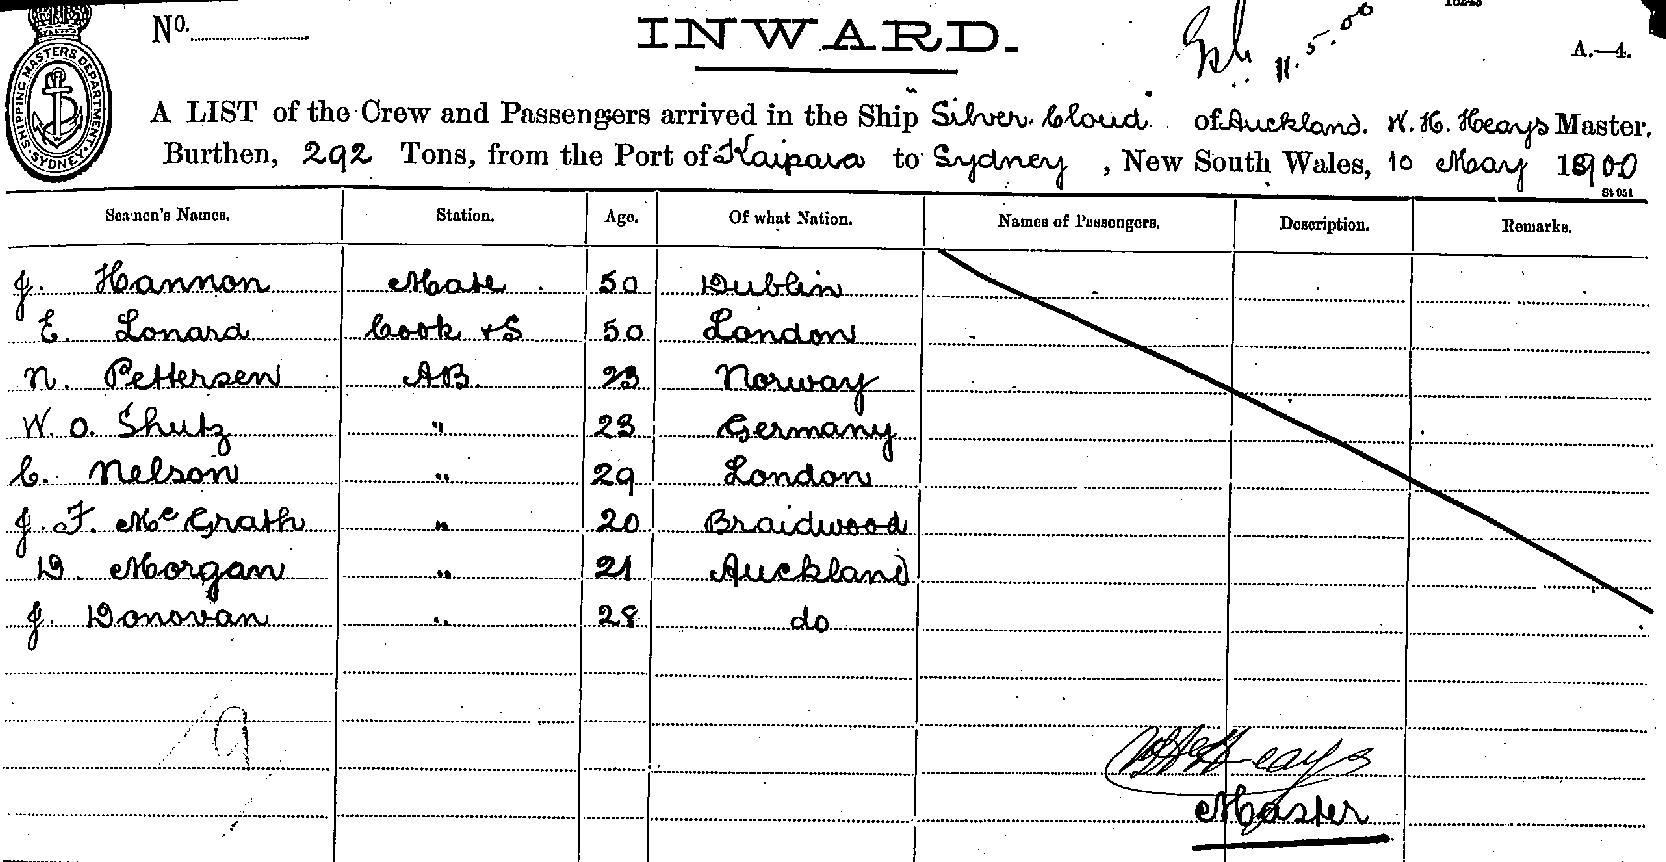 No.
INWARD.
11.5.00
A.—4.
SHIPPING MASTERS DEPARTMENT SYDNEY
A LIST of the Crew and Passengers arrived in the Ship Silver Cloud of Auckland. W. H. Heays Master,
Burthen, 292 Tons, from the Port of Kaipara to Sydney, New South Wales, 10 May 1900
St 051
Seamen's Names. Station. Age. Of what Nation. Names of Passengers. Description. Remarks.
J. Hannon Mate 50 Dublin
E. Lonard Cook & S 50 London
N. Pettersen AB. 23 Norway
W. O. Shutz " 23 Germany
C. Nelson " 29 London
J. F. McGrath " 20 Braidwood
D. Morgan " 21 Auckland
J. Donovan " 28 do
9
W H Heays
Master